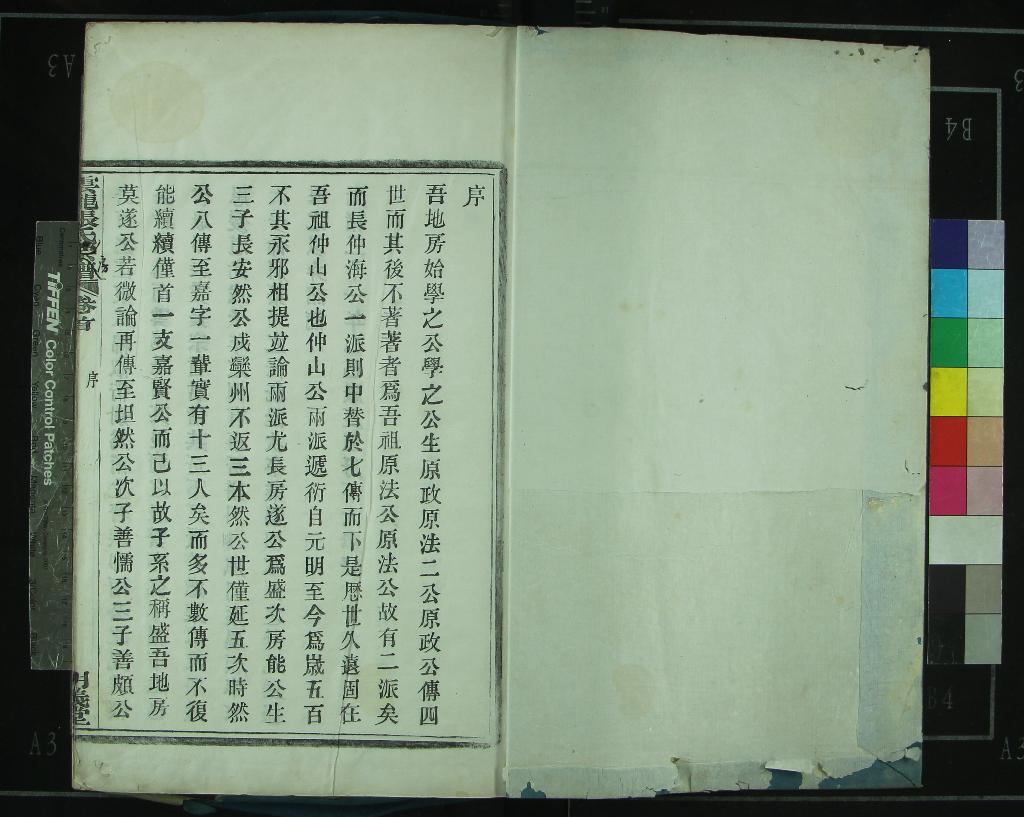 序
吾地房始學之公學之公生原政原法二公原政公傳四
世而其後不著著者爲吾祖原法公原法公故有二派矣
而長仲海公一派則中替於七傳而下是厯世久遠固在
吾祖仲山公也仲山公兩派遞衍自元明至今爲嵗五百
不其永邪相提竝論兩派尤長房遂公爲盛次房能公生
三子長安然公戍欒州不返三本然公世僅延五次時然
公八傳至嘉字一輩實有十三人矣而多不數傳而不復
能續續僅首一支嘉賢公而己以故子系之稱盛吾地房
莫遂公若微論再傳至坦然公次子善懦公三子善頗公
序
卷首
序
明義堂
TIFFEN Color Control Patches
A3
B4
B4
A3
A3